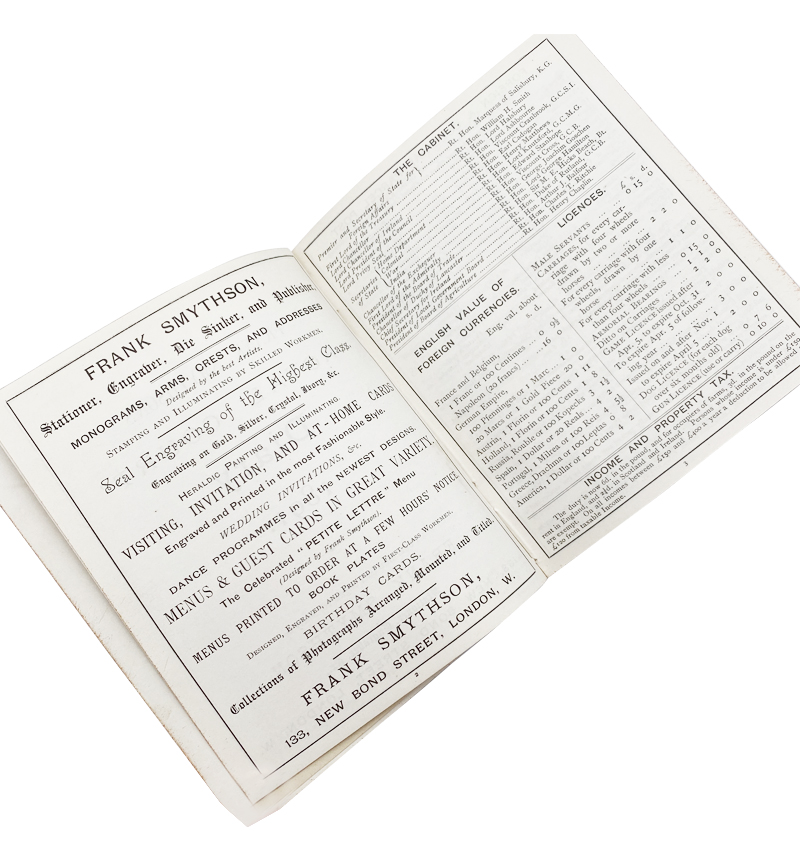 FRANK SMYTHSON,
Stationer, Engraver, Die Sinker, and Publisher.
MONOGRAMS, ARMS, CRESTS, AND ADDRESSES
Designed by the best Artists.
STAMPING AND ILLUMINATING BY SKILLED WORKMEN.
Seal Engraving of the Highest Class.
Engraving on Gold, Silver, Crystal, Ivory, &c.
HERALDIC PAINTING AND ILLUMINATING.
VISITING, INVITATION, AND AT-HOME CARDS
Engraved and Printed in the most Fashionable Style.
WEDDING INVITATIONS, &c.
DANCE PROGRAMMES in all the NEWEST DESIGNS.
MENUS & GUEST CARDS IN GREAT VARIETY.
The Celebrated "PETITE LETTRE" Menu
(Designed by Frank Smythson).
MENUS PRINTED TO ORDER AT A FEW HOURS' NOTICE.
BOOK PLATES
DESIGNED, ENGRAVED, AND PRINTED BY FIRST-CLASS WORKMEN.
BIRTHDAY CARDS.
Collections of Photographs Arranged, Mounted, and Titled.
FRANK SMYTHSON,
133, NEW BOND STREET, LONDON, W.
2
THE CABINET.
Premier and Secretary of State for
Foreign Affairs
Rt. Hon. Marquess of Salisbury, K.G.
First Lord of the Treasury
Rt. Hon. William H. Smith
Lord Chancellor
Rt. Hon. Lord Halsbury
Lord Chancellor of Ireland
Rt. Hon. Lord Ashbourne
Lord President of the Council
Rt. Hon. Viscount Cranbrook, G.C.S.I.
Lord Privy Seal
Rt. Hon. Earl Cadogan
Secretaries of State
Home Department
Rt. Hon. Henry Matthews
Colonial
Rt. Hon. Lord Knutsford, G.C.M.G.
War
Rt. Hon. Edward Stanhope
India
Rt. Hon. Viscount Cross, G.C.B.
Chancellor of the Exchequer
Rt. Hon. George Joachim Goschen
First Lord of the Admiralty
Rt. Hon. Lord George Hamilton
President of Board of Trade
Rt. Hon. Sir M. E. Hicks Beach, Bt.
Chancellor of Duchy of Lancaster
Rt. Hon. Duke of Rutland, G.C.B.
Chief Secretary for Ireland
Rt. Hon. Arthur J. Balfour
President of Local Government Board
Rt. Hon. Charles T. Ritchie
President of Board of Agriculture
Rt. Hon. Henry Chaplin.
ENGLISH VALUE OF
FOREIGN CURRENCIES.
Eng. val. about
s. d.
France and Belgium,
Franc or 100 Centimes ... 0 9½
Napoleon (20 francs) ... 16 0
German Empire,
100 Pfennings or 1 Marc... 1 0
20 Marcs or 1 Gold Piece 20 0
Austria, 1 Florin or 100 Cents
Holland, 1 Florin or 100 Cents 1 8
Russia, Rouble or 100 Kopecks
Spain, 1 Dollar or 20 Reals
Portugal, 1 Milrea or 1000 Reis
Greece, Drachma or 100 Leptas
America, 1 Dollar or 100 Cents 4 2
LICENCES.
£ s. d.
MALE SERVANTS ... 0 15 0
CARRIAGES, for every car-
riage with four wheels
drawn by two or more
horses ... 2 2 0
For every carriage with four
wheels, drawn by one
horse ... 1 1 0
For every carriage with less
than four wheels ... 0 15 0
ARMORIAL BEARINGS ... 1 1 0
Ditto on Carriages ... 2 2 0
GAME LICENCE issued after
Apr. 5, to expire Oct. 31 2 0 0
To expire Apr. 5 of follow-
ing year ... 3 0 0
Issued on and after Nov. 1
to expire April 5 ... 2 0 0
DOG LICENCE (for each dog
over six months old) 0 7 6
GUN LICENCE (use or carry) 0 10 0
INCOME AND PROPERTY TAX.
The duty is now 6d. in the pound, and for occupiers of farms, 3d. in the pound on the
rent in England, and in Scotland and Ireland. Persons whose income is under £150
are exempt. On all incomes between £150 and £400 a year a deduction to be allowed
£120 from taxable Income.
3